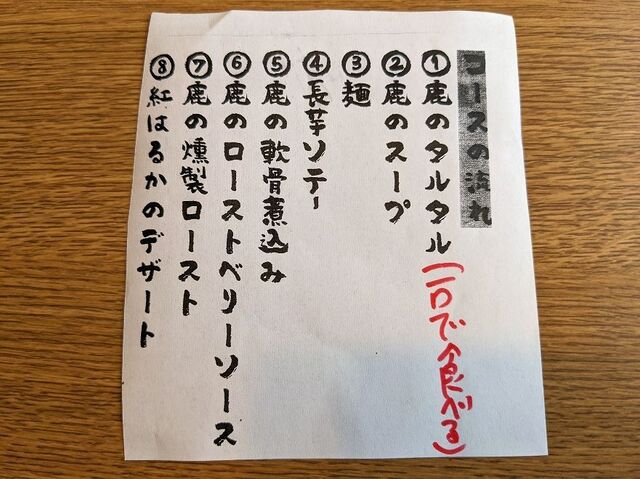 コースの流れ
①鹿のタルタル(一口で食べる)
②鹿のスープ
③麺
④長芋ソテー
⑤鹿の軟骨煮込み
⑥鹿のローストベリーソース
⑦鹿の燻製ロースト
⑧紅はるかのデザート